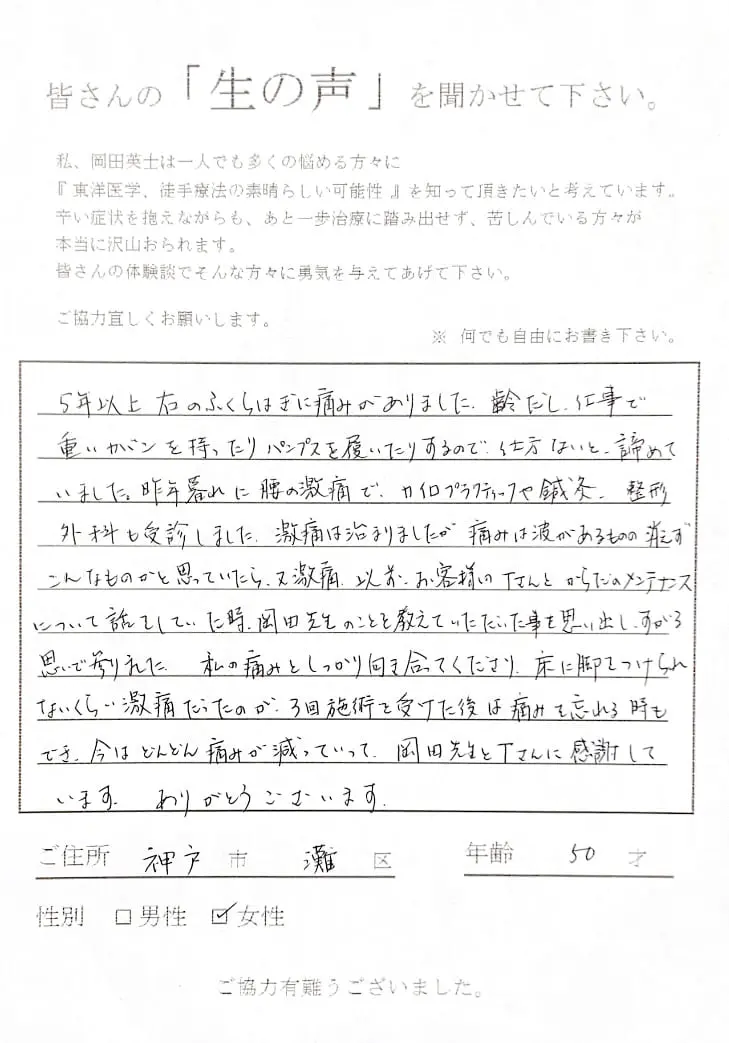 皆さんの「生の声」を聞かせて下さい。
私、岡田英士は一人でも多くの悩める方々に
『 東洋医学、徒手療法の素晴らしい可能性 』を知って頂きたいと考えています。
辛い症状を抱えながらも、あと一歩治療に踏み出せず、苦しんでいる方々が
本当に沢山おられます。
皆さんの体験談でそんな方々に勇気を与えてあげて下さい。
ご協力宜しくお願いします。
※ 何でも自由にお書き下さい。
5年以上 右のふくらはぎに痛みがありました。齢だし、仕事で
重いカバンを持ったりパンプスを履いたりするので、仕方ないと、諦めて
いました。昨年暮れに腰の激痛で、カイロプラクティックや鍼灸、整形
外科も受診しました。激痛は治まりましたが 痛みは波があるものの消えず
こんなものかと思っていたら、又激痛、以前、お客様のTさんと からだのメンテナンス
について話をしていた時、岡田先生のことを教えていただいた事を思い出し、すがる
思いで参りました。 私の痛みとしっかり向き合ってくださり、床に脚をつけられ
ないくらい激痛だったのが、3回施術を受けた後は痛みを忘れる時も
でき、今はどんどん痛みが減っていって、岡田先生とTさんに感謝して
います。 ありがとうございます。
ご住所 神戸 市 灘 区 年齢 50 才
性別 □男性 ☑女性
ご協力有難うございました。